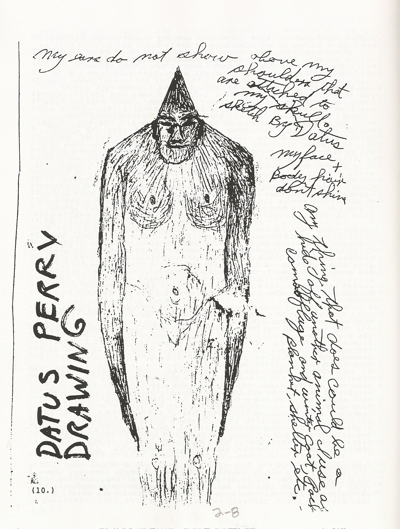 my ears do not show above my
shoulders that
are attached to
my skull.
sketch By Datus
my face +
Body hair
dont shine
any thing that does could be a
hide of another animal use as
camoflage and winter coat, rock
plant, shelter etc.
DATUS PERRY
DRAWING
(10.)
2-8